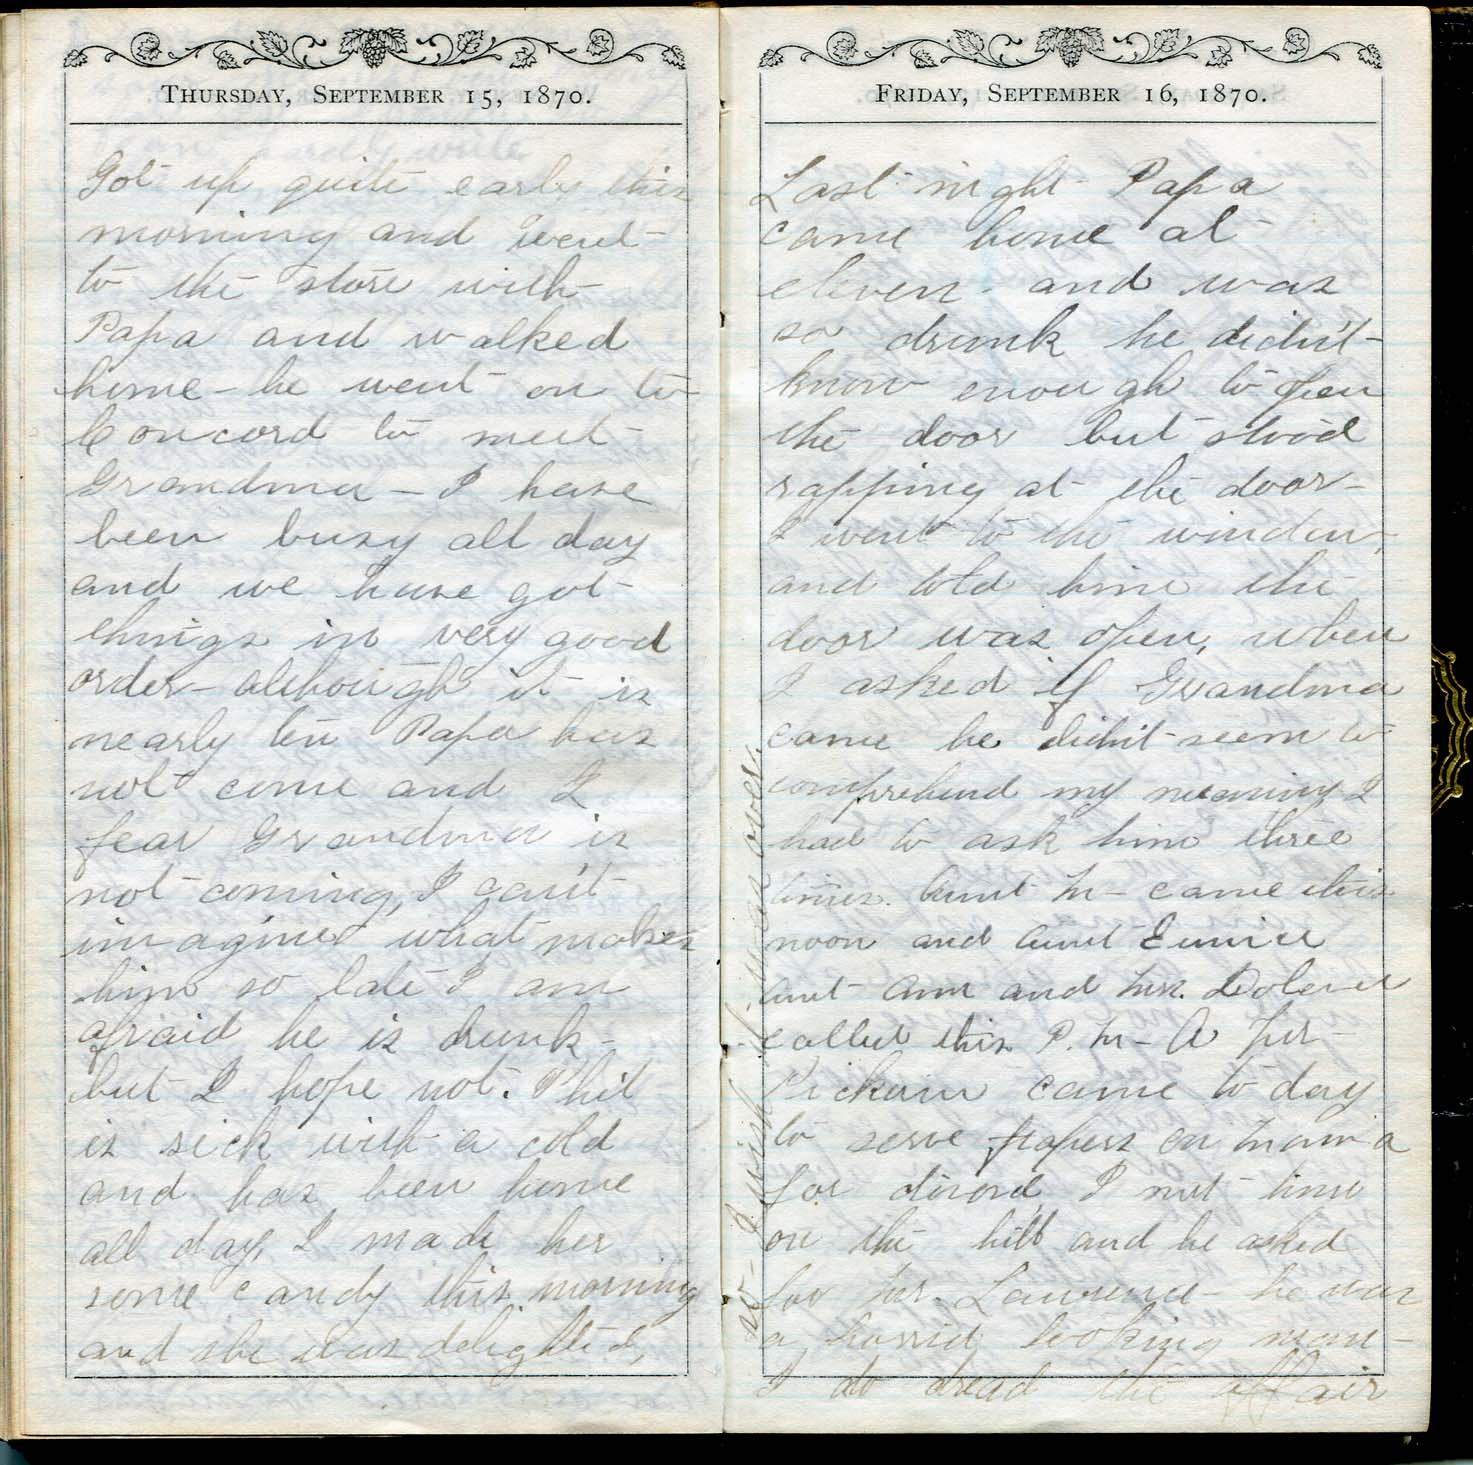 THURSDAY, SEPTEMBER 15, 1870.
Got up quite early this
morning and went
to the store with
Papa and walked
home - he went on to
Concord to meet
Grandma - I have
been busy all day
and we have got
things in very good
order - although it is
nearly ten Papa has
not come and I
fear Grandma is
not coming, I can't
imagine what makes
him so late I am
afraid he is drunk -
but I hope not. Phil
is sick with a cold
and has been home
all day, I made her
some candy this morning
and she was delighted,
FRIDAY, SEPTEMBER 16, 1870.
Last night Papa
came home at
eleven - and was
so drunk he didn't
know enough to open
the door but stood
rapping at the door -
I went to the window,
and told him the
door was open, when
I asked if Grandma
came he didn't seem to
comprehend my meaning, I
had to ask him three
times. Aunt M - came this
noon and Aunt Eunice
Aunt Ann and Mrs.
called this P.M - A Mr
came to day
to serve papers on Mama
for divorce, I met him
on the hill and he asked
for Mrs. Lawrence - he was
a horrid looking man -
I do dread the affair
so - I wish it was over.